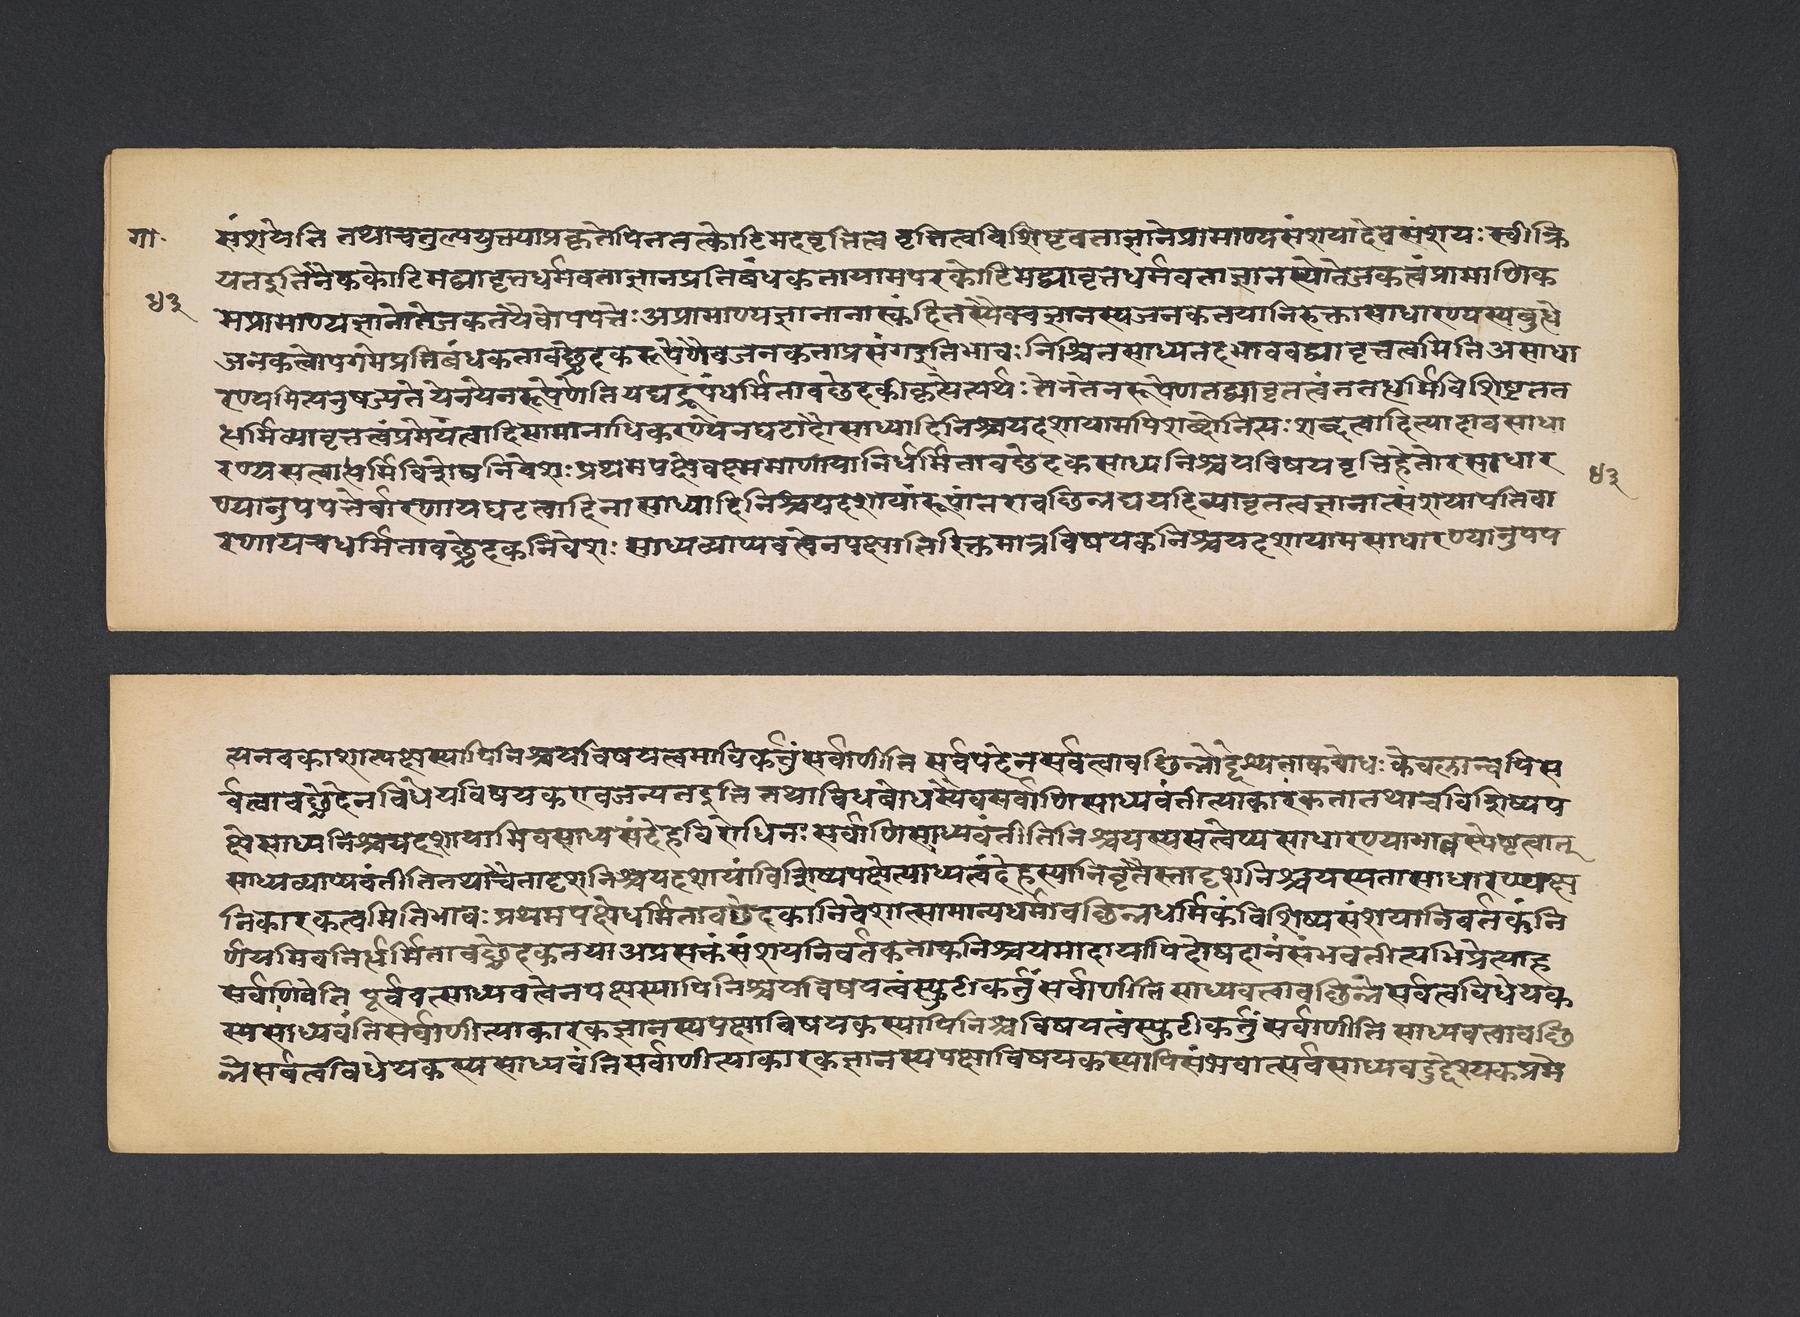 गा॰
४३
संशयेति तथाचतुल्ययुक्तयाप्रकृतेपितत्तत्कोटिमदवृत्तित्वे वृत्तित्वविशिष्टवत्ताज्ञानेप्रामाण्यसंशयादेवसंशयः स्वीक्रि
यतइतिनैककोटिमद्व्यावृत्तधर्मवत्ताज्ञानप्रतिबंधकतायामपरकोटिमद्व्यावृत्तधर्मवत्ताज्ञानस्योतेजकत्वंप्रामाणिक
मप्रामाण्यज्ञानोतेजकतयैवोपपत्तेः अप्रामाण्यज्ञानानास्कंदितस्यैक्वज्ञानस्यजनकतयानिरुक्तासाधारण्यस्यबुधे
जनकत्वोपगमेप्रतिबंधकतावछेदकरूपेणैवजनकताप्रसंगइतिभावः निश्चितसाध्यतदभाववद्व्यावृत्तत्वमिति असाधा
रण्यमित्यनुषज्यते येनयेनरूपेणेति यद्यद्रूपंधर्मितावछेदकीकृत्येत्यर्थः तेनतेनरूपेणतद्व्यावृतत्वंततद्धर्मिविशिष्टतत
द्धर्मिव्यावृत्तत्वंप्रमेयत्वादिसामानाधिकरण्येनघटादौसाध्यादिनिश्चयदशायामपिशब्दोनित्यः शब्दत्वादित्यादावसाधा
रण्यसत्वाद्धर्मिविशेषनिवेशः प्रथमपक्षेवक्ष्यमाणायानिर्धर्मितावछेदकेसाध्यनिश्चयविषयवृत्तिहेतोरसाधार
ण्यानुपपत्तेर्वारणायघटत्वादिनासाध्यादिनिश्चयदशायांरूपांतरावछिन्नद्वयदिव्यावृतत्वज्ञानात्संशयापतिवा
रणायचधर्मितावछेदकनिवेशः साध्यव्याप्यवत्वेनपक्षातिरिक्तमात्रविषयकनिश्चयदशायामसाधारण्यानुपप
४३
त्यनवकाशात्पक्षस्यापिनिश्चयविषयत्वमाविर्कर्तुंसर्वाणीति सर्वपदेनसर्वत्वावछिन्नोद्देश्यताकबोधः केवलान्वपिस
र्वत्वावछेदेनविधेयविषयकएवजन्यतइति तथाविधबोधस्यैवसर्वाणिसाध्यवंतीत्याकारकतातथाचविशिष्यप
क्षेसाध्यनिश्चयदशायामिवसाध्यसंदेहविरोधिनः सर्वाणिसाध्यवंतीतिनिश्चयस्यसत्वेप्यसाधारण्याभावस्येष्टत्वात्
साध्यव्याप्यवंतीतितथाचैतादृशनिश्चयदशायांविशिष्यपक्षेत्याध्यत्वंदेहस्यानिवृतैस्तादृशनिश्चयस्यतासाधारण्यक्ष
निकारकत्वमितिभावः प्रथमपक्षेधर्मितावछेदकानिवेशात्सामान्यधर्मावछिन्नधर्मिकंविशिष्यसंशयानिवर्तकंनि
र्णयमिवनिर्धर्मितावछेदकतया अप्रसक्तंसंशयनिवर्तकताकनिश्चयमादायापिदोषदानंसंभवतीत्यभिप्रेत्याह
सर्वाणिवेति पूर्ववत्साध्यवत्वेनपक्षस्यापिनिश्चयविषयत्वंस्फुटीकर्तुंसर्वाणीति साध्यवत्वावछिन्नेसर्वत्वविधेयक
स्यसाध्यवंतिसर्वाणीत्याकारकज्ञानस्यपक्षाविषयकस्यापिनिश्चविषयत्वंस्फुटीकर्तुंसर्वाणीति साध्यवत्वावछि
न्नेसर्वत्वविधेयकस्यसाध्यवंतिसर्वाणीत्याकारकज्ञानस्यपक्षाविषयकस्यापिसंभवात्सर्वसाध्यवदुद्देश्यकप्रमे